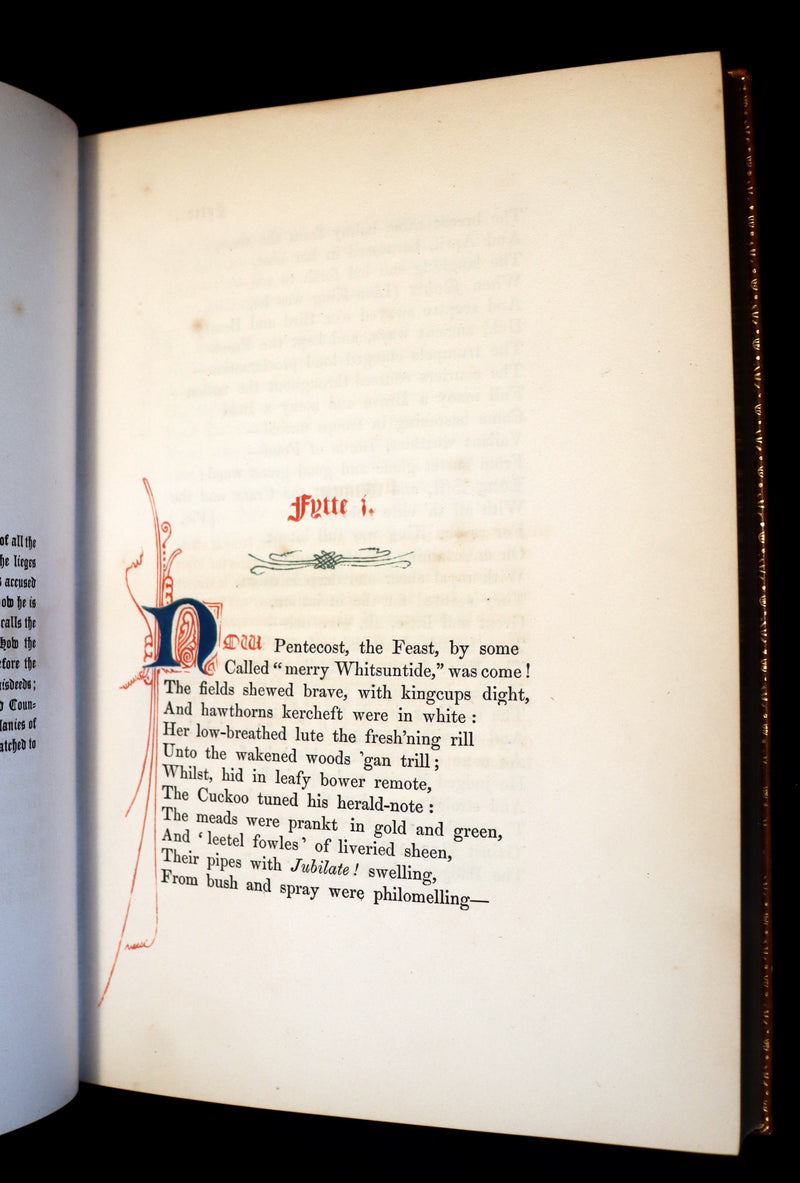 of all the
he lieges
accused
ow he is
calls the
how the
efore the
isdeeds;
Coun-
lanies of
atched to
Fytte i.
NOW Pentecost, the Feast, by some
Called “merry Whitsuntide,” was come!
The fields shewed brave, with kingcups dight,
And hawthorns kercheft were in white:
Her low-breathed lute the fresh'ning rill
Unto the wakened woods 'gan trill;
Whilst, hid in leafy bower remote,
The Cuckoo tuned his herald-note:
The meads were prankt in gold and green,
And ‘leetel fowles’ of liveried sheen,
Their pipes with Jubilate! swelling,
From bush and spray were philomelling—